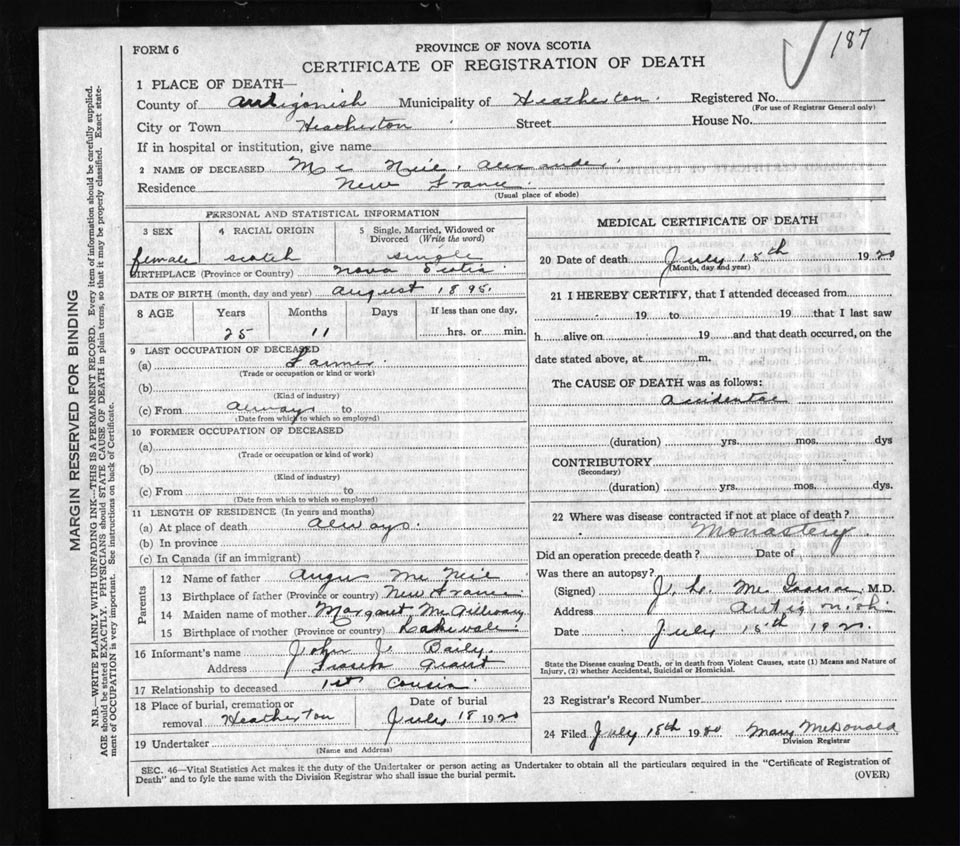 187
FORM 6
PROVINCE OF NOVA SCOTIA
CERTIFICATE OF REGISTRATION OF DEATH
1 PLACE OF DEATH—
County of Antigonish Municipality of Heatherton. Registered No.
(For use of Registrar General only)
City or Town Heatherton Street House No.
If in hospital or institution, give name
2 NAME OF DECEASED Mc Neil, Alexander.
Residence New France.
(Usual place of abode)
PERSONAL AND STATISTICAL INFORMATION
3 SEX 4 RACIAL ORIGIN 5 Single, Married, Widowed or Divorced (Write the word)
female scotch single
BIRTHPLACE (Province or Country) Nova Scotia
DATE OF BIRTH (month, day and year) August 1895.
8 AGE Years Months Days If less than one day,
25 11 hrs. or min.
9 LAST OCCUPATION OF DECEASED
(a) Farmer
(Trade or occupation or kind or work)
(b)
(Kind of industry)
(c) From always to
(Date from which to which so employed)
10 FORMER OCCUPATION OF DECEASED
(a)
(Trade or occupation or kind of work)
(b)
(Kind of industry)
(c) From to
(Date from which to which so employed)
11 LENGTH OF RESIDENCE (In years and months)
(a) At place of death always.
(b) In province
(c) In Canada (if an immigrant)
Parents
12 Name of father Angus Mc Neil
13 Birthplace of father (Province or country) New France
14 Maiden name of mother Margaret McGillivray
15 Birthplace of mother (Province or country) Lakevale
16 Informant's name John J. Baily.
Address Grant
17 Relationship to deceased 1st Cousin
18 Place of burial, cremation or removal Heatherton
Date of burial July 18 1920
19 Undertaker
(Name and Address)
MEDICAL CERTIFICATE OF DEATH
20 Date of death July 15th 1920
(Month, day and year)
21 I HEREBY CERTIFY, that I attended deceased from
19 to 19 that I last saw
h alive on 19 and that death occurred, on the
date stated above, at m.
The CAUSE OF DEATH was as follows:
Accidental
(duration) yrs. mos. dys
CONTRIBUTORY
(Secondary)
(duration) yrs. mos. dys.
22 Where was disease contracted if not at place of death?
Monastery
Did an operation precede death? Date of
Was there an autopsy?
(Signed) J. M.D.
Address Antigonish.
Date July 15th 1920.
State the Disease causing Death, or in death from Violent Causes, state (1) Means and Nature of
Injury, (2) whether Accidental, Suicidal or Homicidal.
23 Registrar's Record Number
24 Filed July 18th 1920 Mary McDonald
Division Registrar
SEC. 46—Vital Statistics Act makes it the duty of the Undertaker or person acting as Undertaker to obtain all the particulars required in the "Certificate of Registration of
Death" and to fyle the same with the Division Registrar who shall issue the burial permit.
(OVER)
MARGIN RESERVED FOR BINDING
N.B.—WRITE PLAINLY WITH UNFADING INK—THIS IS A PERMANENT RECORD. Every item of information should be carefully supplied.
AGE should be stated EXACTLY. PHYSICIANS should STATE CAUSE OF DEATH in plain terms, so that it may be properly classified. Exact state-
ment of OCCUPATION is very important. See instructions on back of Certificate.